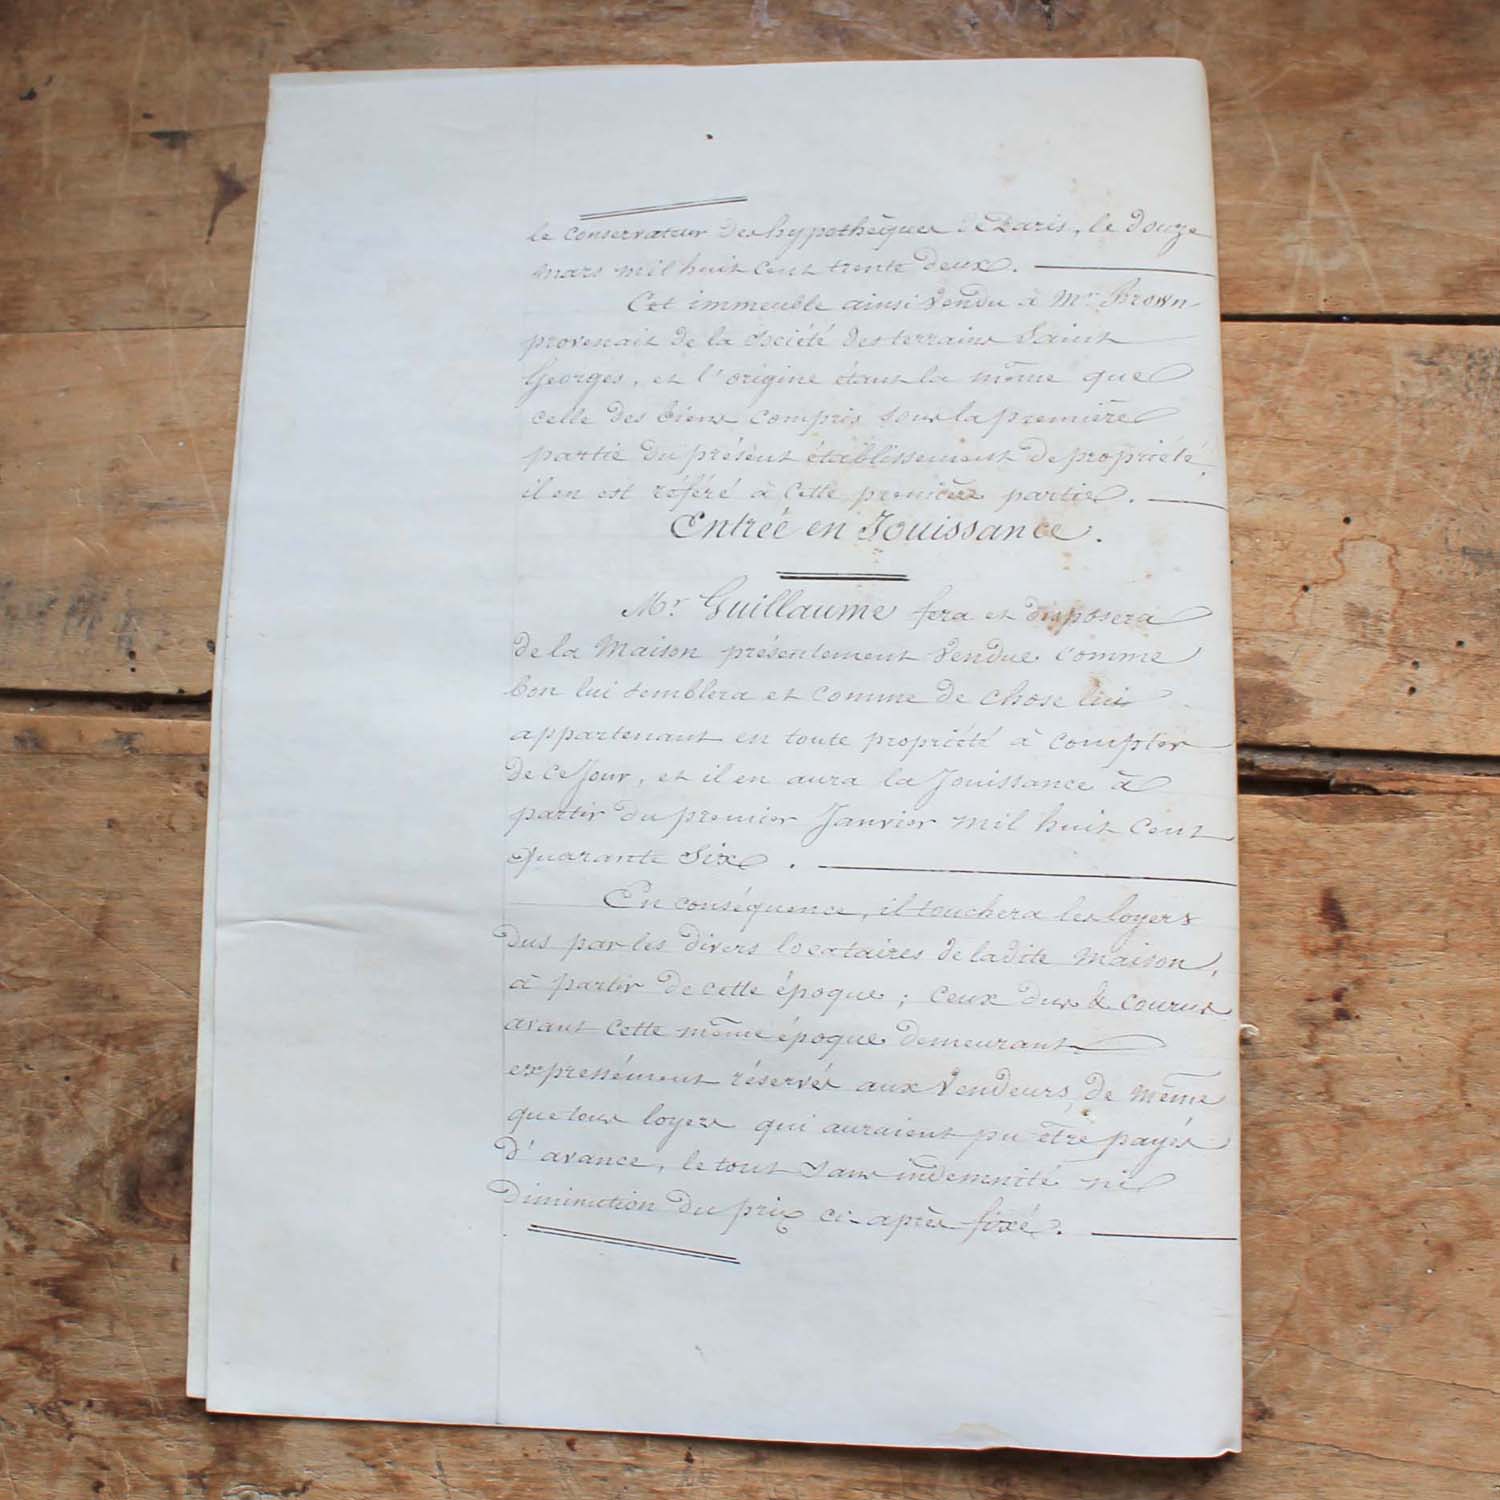 le conservateur des hypothèques de Paris, le douze
mars mil huit cent trente deux.
Cet immeuble ainsi vendu à Mr. Brown
provenait de la société des terrains Saint
Georges, et l'origine étant la même que
celle des biens compris sous la première
partie du présent établissement de propriété,
il en est référé à cette première partie.
Entrée en Jouissance.
Mr. Guillaume fera et disposera
de la Maison présentement vendue comme
bon lui semblera et comme de chose lui
appartenant en toute propriété à compter
de ce Jour, et il en aura la Jouissance à
partir du premier Janvier mil huit cent
quarante Six.
En conséquence, il touchera les loyers
dus par les divers locataires de ladite Maison,
à partir de cette époque ; ceux dus & courus
avant cette même époque demeurant
expressément réservés aux vendeurs, de même
que tous loyers qui auraient pu être payés
d'avance, le tout sans indemnité ni
diminution du prix ci-après fixé.